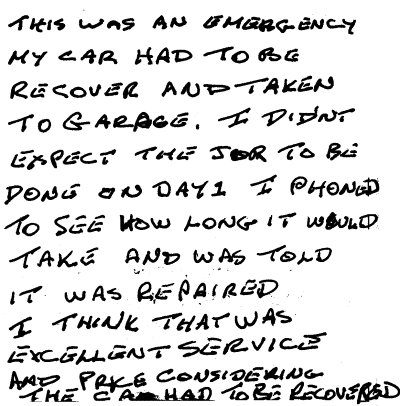 THIS WAS AN EMERGENCY
MY CAR HAD TO BE
RECOVER AND TAKEN
TO GARAGE. I DIDNT
EXPECT THE JOB TO BE
DONE ON DAY 1 I PHONED
TO SEE HOW LONG IT WOULD
TAKE AND WAS TOLD
IT WAS REPAIRED
I THINK THAT WAS
EXCELLENT SERVICE
AND PRICE CONSIDERING
THE CAR HAD TO BE RECOVERED